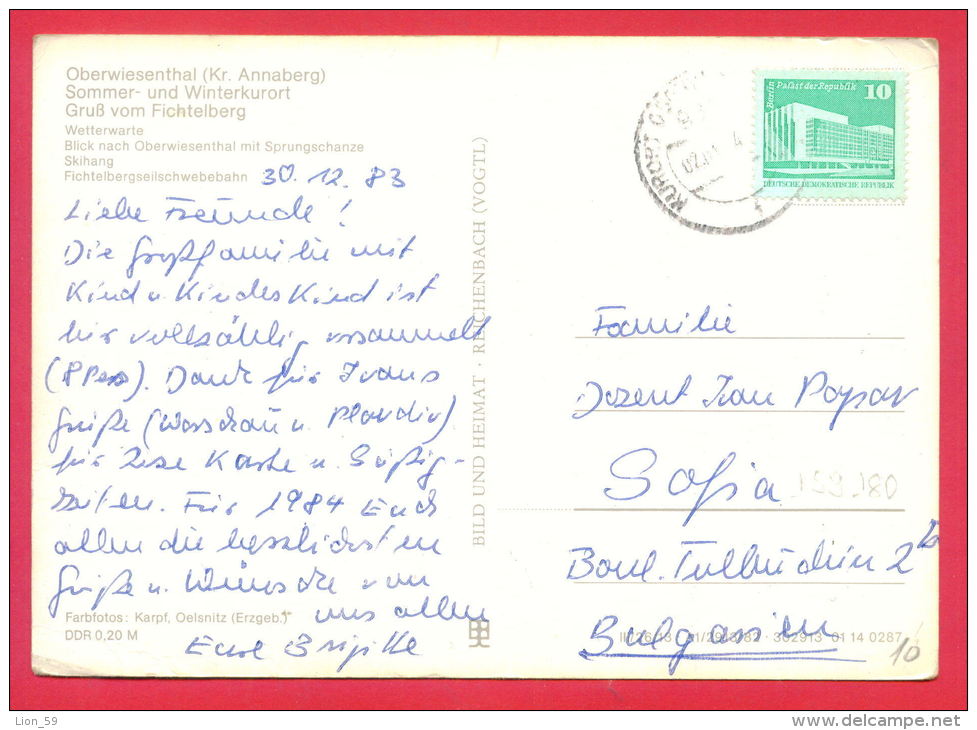 Oberwiesenthal (Kr. Annaberg)
Sommer- und Winterkurort
Gruß vom Fichtelberg
Wetterwarte
Blick nach Oberwiesenthal mit Sprungschanze
Skihang
Fichtelbergseilschwebebahn
30.12.83
Liebe Freunde!
Die Großfamilie mit
Kind u. Kindeskind ist
hier vollzählig versammelt
(8 Pers). Dank für Ivans
Grüße (Warschau u. Plovdiv)
für Karte u. Süßig-
keiten. Für 1984 Euch
allen die herzlichsten
Grüße u. Wünsche von
uns allen
Eure Brigitte
Farbfotos: Karpf, Oelsnitz (Erzgeb.)
DDR 0,20 M
BILD UND HEIMAT · REICHENBACH (VOGTL)
KURORT
Berlin Palast der Republik 10
DEUTSCHE DEMOKRATISCHE REPUBLIK
Familie
Dozent Ivan Popov
Sofia
159180
Boul. Tolbuchin 2
Bulgarien
302913 01 14 0287
10
Lion_59
www.delcampe.net